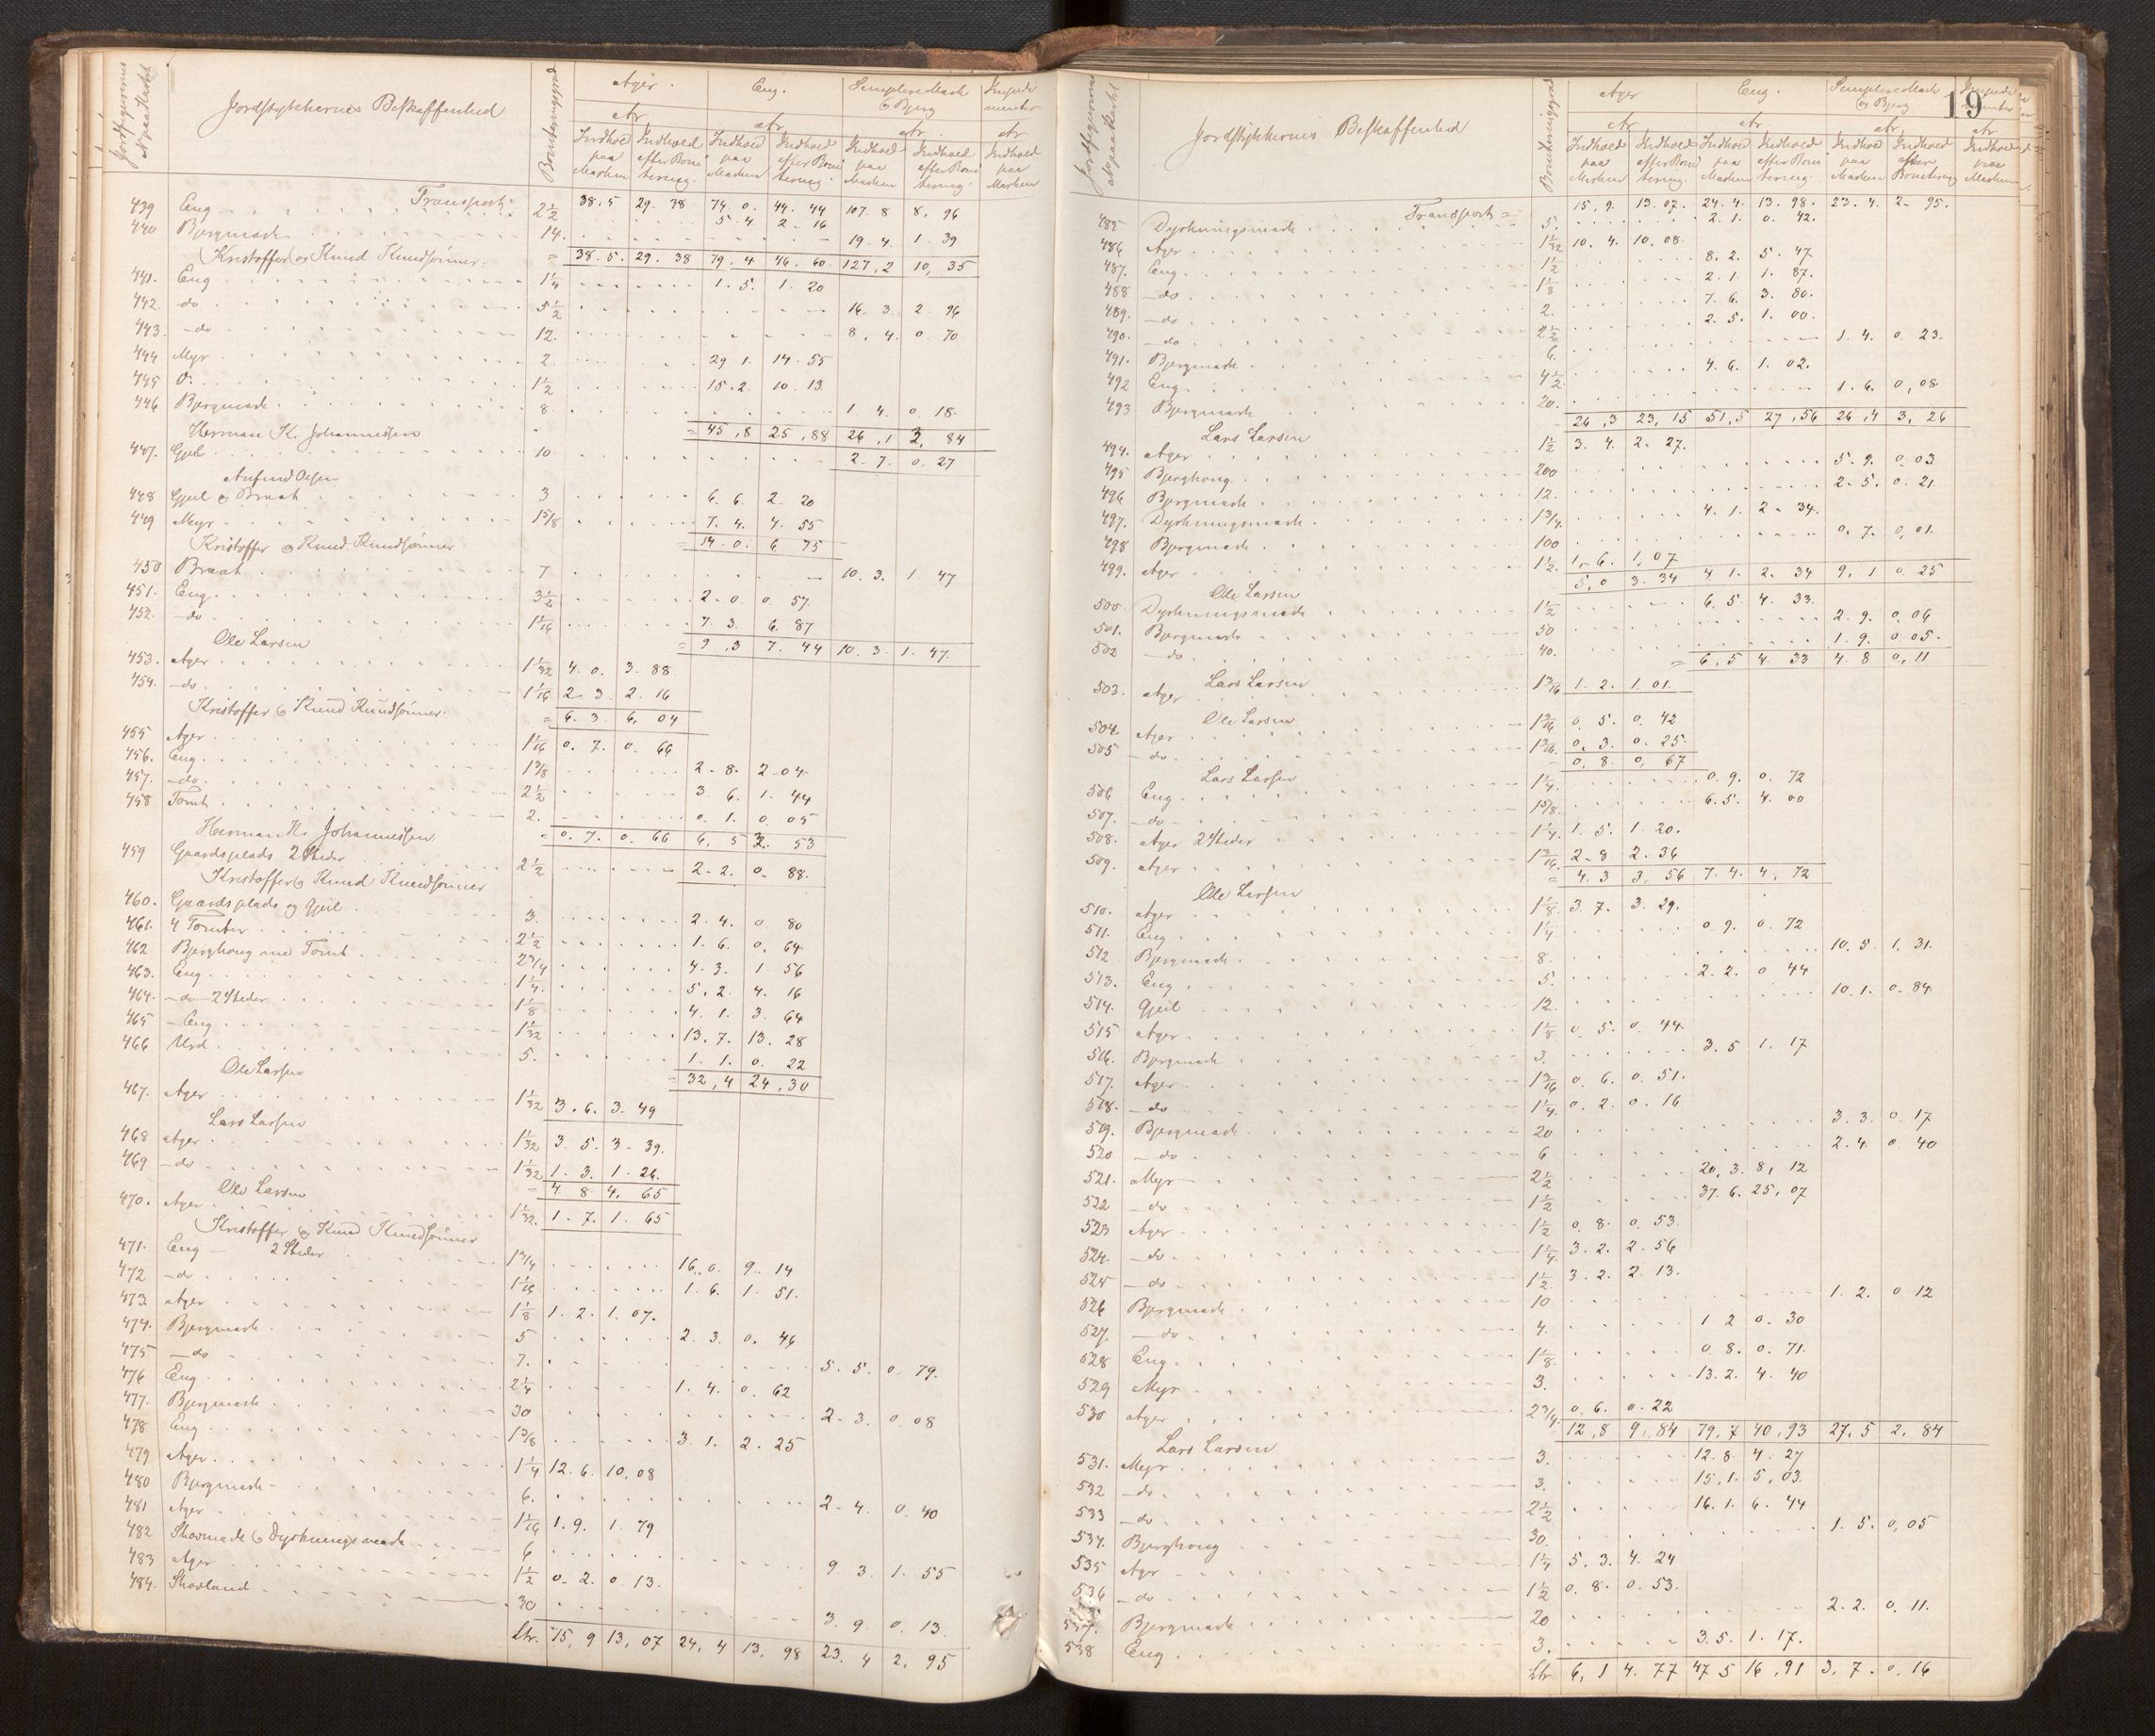 Jordfigurernes N paa Kartet
Jordstykkernes Beskaffenhed
Boniteringsgrad
Ager. Eng. Semplere Mark og Bjerg Impedimenter
Ar Ar Ar Ar
Indhold paa Marken Indhold efter Bonitering. Indhold paa Marken Indhold efter Bonitering. Indhold paa Marken Indhold efter Bonitering. Indhold paa Marken
Transport= 38.5 29.38 74.0. 44.44 107.8 8.96
439 Eng 2½ 5.4 2.16
440 Bjergmark 14. 19.4. 1.39
Kristoffer og Knud Knudsønner. = 38.5. 29.38 79.4 46.60. 127,2 10,35
441. Eng 1¼ 1.5. 1.20
442. -do 5½ 16.3. 2.96
443. -do 12. 8.4. 0.70
444 Myr 2. 29.1. 14.55
445 D. 1½ 15.2. 10.13
446 Bjergmark 8. 1.4. 0.18.
Herman K. Johannessen = 45,8 25,88 26,1 3,84
447. Gjel 10 2.7. 0.27
448 Gjeil og Braat 3 6.6. 2.20
449 Myr 1⅝ 7.4. 4.55
Kristoffer og Knud Knudsønner = 14.0. 6.75
450 Braat 7 10.3. 1.47
451. Eng 3½ 2.0. 0.57.
452. -do 1 1/16 7.3. 6.87
Ole Larsen = 9,3 7.44 10.3. 1.47.
453. Ager 1 1/32 4.0. 3.88
454. -do 1 1/16 2.3. 2.16
Kristoffer og Knud Knudsønner. = 6.3. 6,04
455 Ager 1 1/16 0.7. 0.66
456. Eng 1⅜ 2.8. 2.04.
457. -do. 2½ 3.6. 1.44
458 Tomt 2. 0.1. 0.05
Herman K. Johannessen. = 0.7. 0.66 6,5 3.53
459 Gaardsplads 2 Steder 2½ 2.2. 0.88.
Kristoffer og Knud Knudsønner
460. Gaardsplads og Gjeil 3. 2.4. 0.80
461. 4 Tomter 2½ 1.6. 0.64
462 Bjerghoug med Tomt 2¾ 4.3. 1.56
463. Eng 1¼. 5.2. 4.16
464. -do- 2 Steder 1⅛ 4.1. 3.64
465 -Eng 1 1/32 13.7. 13.28
466 Urd 5. 1.1. 0.22
Ole Larsen = 32,4 24,30
467. Ager 1 1/32 3.6. 3.49
Lars Larsen
468 Ager 1 1/32 3.5. 3.39.
469 -do 1 1/32 1.3. 1.26.
Ole Larsen = 4.8 4.65
470. Ager 1 1/32. 1.7. 1.65
Kristoffer og Knud Knudsønner
471. Eng - 2 Steder 1¾ 16.0. 9.14
472 -do 1 1/16 1.6. 1.51.
473. Ager 1⅛ 1.2. 1.07.
474. Bjergmark 5 2.3. 0.46
475 -do 7. 5.5. 0.79.
476 Eng 2¼ 1.4. 0.62
477. Bjergmark 30 2.3. 0.08
478 Eng 1⅜ 3.1. 2.25
479 Ager 1¼ 12.6. 10.08
480 Bjergmark 6. 2.4. 0.40
481 Ager 1 1/16 1.9. 1.79
482 Skovmark og Dyrkningsmark 6 9.3. 1.55
483 Ager 1½ 0.2. 0.13.
484. Skovland 30 3.9. 0.13.
Ltr. 15,9 13,07 24,4 13,98 23.4 2,95
19
Jordfigurernes N paa Kartet
Jordstykkernes Beskaffenhed
Boniteringsgrad
Ager Eng. Semplere Mark og Bjerg Impedimenter
Ar Ar. Ar Ar
Indhold paa Marken Indhold efter Bonitering. Indhold paa Marken Indhold efter Bonitering. Indhold paa Marken Indhold efter Bonitering Indhold paa Marken
Transport = 15.9. 13.07. 24.4. 13.98. 23.4. 2.95.
485 Dyrkningsmark 5. 2.1. 0.42.
486 Ager 1 1/32 10.4. 10.08.
487. Eng 1½ 8.2. 5.47.
488 -do 1⅛ 2.1. 1.87.
489. -do 2. 7.6. 3.80.
490. -do 2½ 2.5. 1.00.
491. Bjergmark 6. 1.4. 0.23.
492 Eng 4½ 4.6. 1.02.
493 Bjergmark 20. 1.6. 0,08
Lars Larsen = 26,3 23,15 51,5 27,56 26,4 3,26
494. Ager 1½ 3.4. 2.27.
495 Bjerghoug 200 5.9. 0.03
496 Bjergmark 12. 2.5. 0.21
497. Dyrkningsmark 1¾. 4.1. 2.34.
498 Bjergmark 100 0.7. 0,01.
499. Ager 1½. 1.6. 1,07
Ole Larsen 5,0 3.34 4.1. 2.34 9,1 0.25
500 Dyrkningsmark 1½ 6.5 4.33.
501. Bjergmark 50 2.9. 0.06
502 -do 40. 1.9. 0.05.
Lars Larsen = 6.5 4.33 4.8 0,11
503. Ager 1 3/16 1.2. 1.01.
Ole Larsen
504. Ager 1 3/16 0.5. 0.42
505 -do 1 3/16. 0.3. 0.25.
Lars Larsen 0.8. 0,67
506 Eng 1¼. 0.9. 0.72
507. -do 1⅝. 6.5. 4.00
508. Ager 2 Steder 1¼. 1.5. 1.20.
509. Ager 1 3/16. 2.8 2.36
Ole Larsen = 4.3 3,56 7.4. 4,72
510. Ager 1⅛. 3.7. 3.29.
511. Eng 1¼. 0.9. 0.72
512 Bjergmark 8. 10.5. 1.31.
513. Eng 5. 2.2. 0.44
514. Gjeil 12. 10.1. 0.84
515 Ager 1⅛ 0.5. 0.44.
516. Bjergmark 3. 3.5 1.17
517. Ager 1 3/16 0.6. 0.51.
518. -do 1¼. 0.2. 0.16
519. Bjergmark 20 3.3. 0.17
520 -do 6 2.4. 0.40
521. Myr 2½ 20,3. 8,12
522 -do 1½ 37.6. 25,07
523 Ager 1½ 0.8. 0.53.
524. -do 1¼. 3.2. 2.56
525 -do 1½. 3.2. 2.13.
526 Bjergmark 10 1.2. 0.12
527. -do 4. 1.2 0.30
528 Eng 1⅛. 0.8. 0.71.
529 Myr 3. 13.2. 4.40
530 Ager 2¾. 0.6. 0.22
Lars Larsen 12,8 9,84 79,7 40,93 27.5 2,84
531. Myr 3. 12.8. 4.27
532 -do 3. 15.1. 5,03.
533 -do 2½ 16.1. 6.44
534. Bjerghoug 30. 1.5. 0,05
535 Ager 1¼ 5.3. 4.24
536 -do 1½ 0.8. 0.53.
537. Bjergmark 20 2.2. 0.11.
538 Eng 3. 3.5. 1.17.
Ltr 6,1 4.77 47.5 16,91 3.7. 0.16